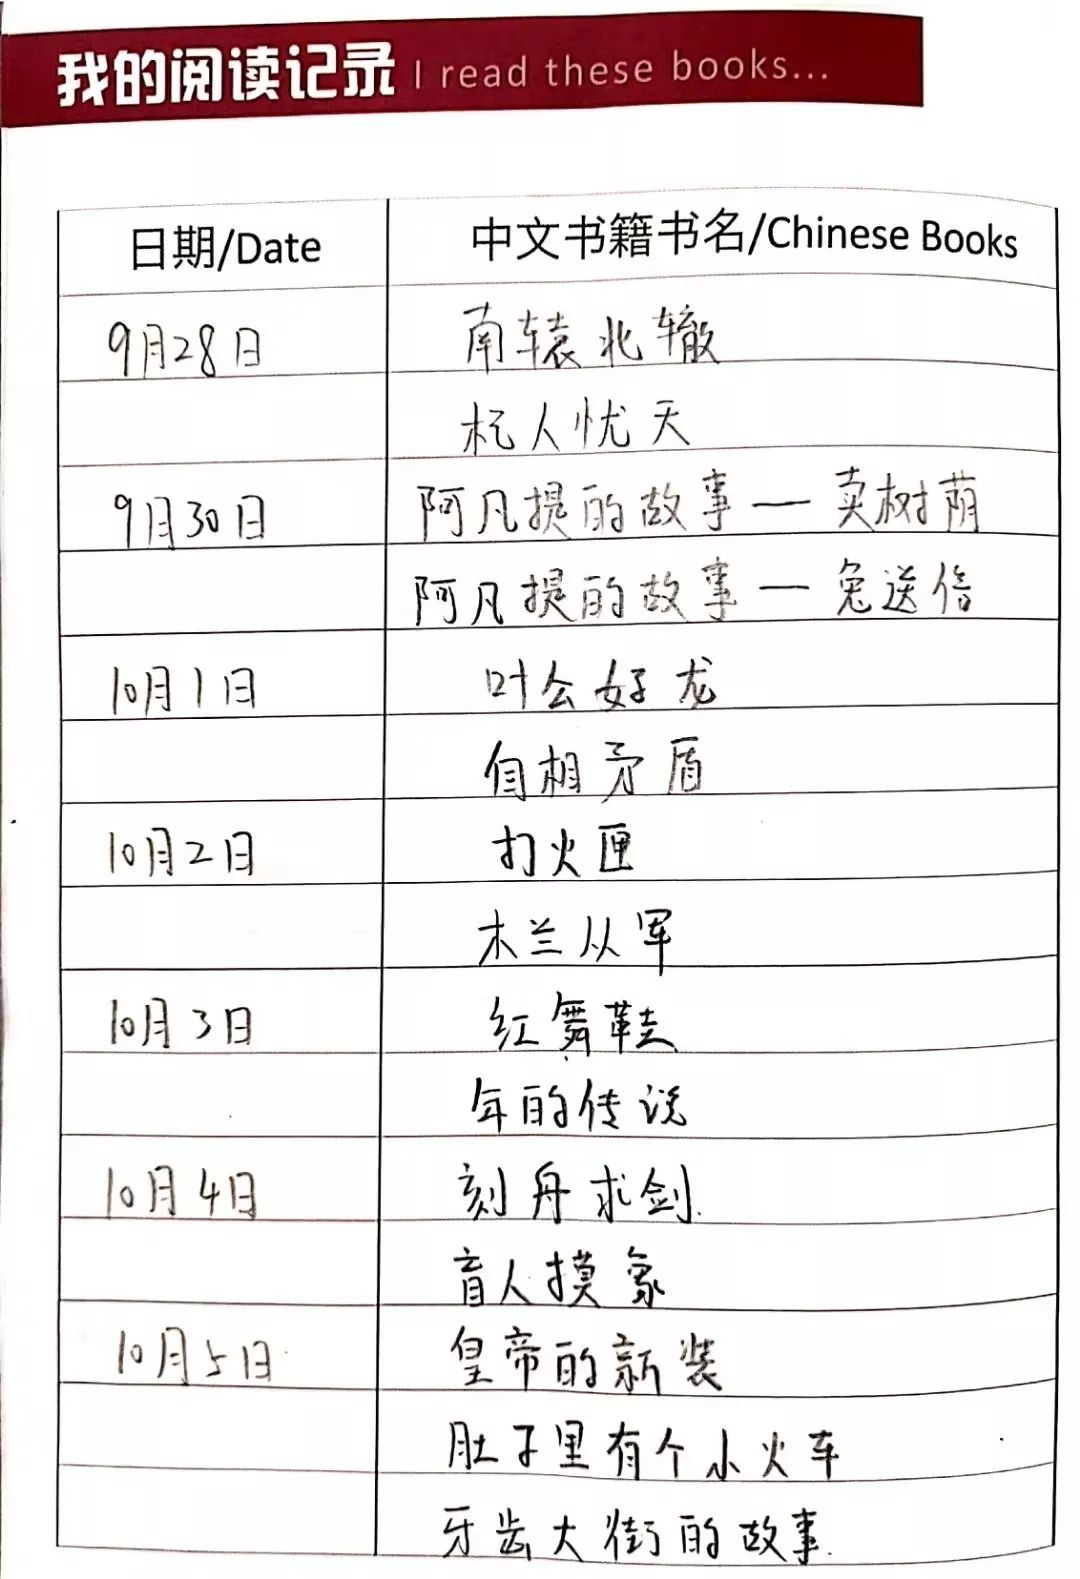 我的阅读记录 I read these books...
日期/Date 中文书籍书名/Chinese Books
9月28日 南辕北辙
杞人忧天
9月30日 阿凡提的故事一卖树荫
阿凡提的故事一兔送信
10月1日 叶公好龙
自相矛盾
10月2日 打火匣
木兰从军
10月3日 红舞鞋
年的传说
10月4日 刻舟求剑
盲人摸象
10月5日 皇帝的新装
肚子里有个小火车
牙齿大街的故事